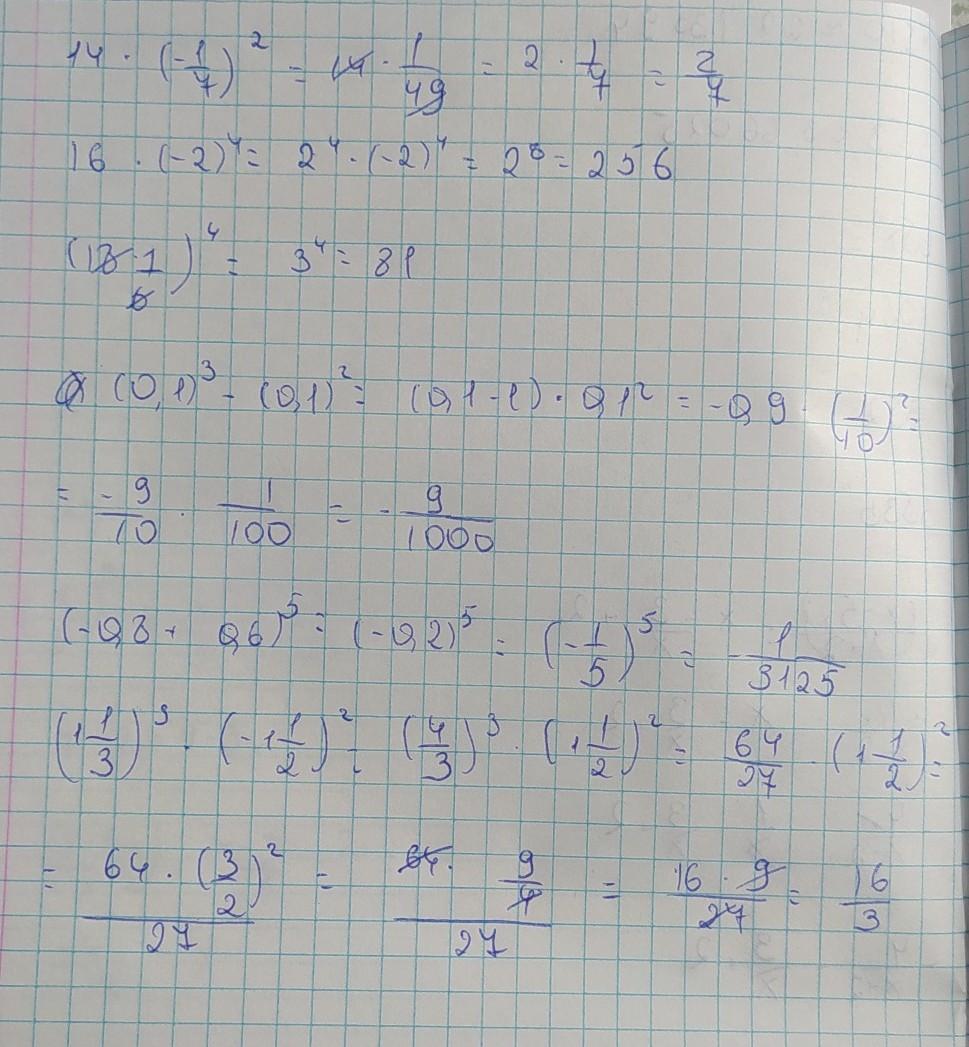 14 · (-1/7)² = 14 · 1/49 = 2 · 1/7 = 2/7
16 · (-2)⁴ = 2⁴ · (-2)⁴ = 2⁸ = 256
(18·1/6)⁴ = 3⁴ = 81
(0,1)³ - (0,1)² = (0,1-1) · 0,1² = -0,9 · (1/10)² =
= -9/10 · 1/100 = -9/1000
(-0,8 + 0,6)⁵ = (-0,2)⁵ = (-1/5)⁵ = -1/3125
(1 1/3)³ · (-1 1/2)² = (4/3)³ · (1 1/2)² = 64/27 · (1 1/2)² =
= 64 · (3/2)²/27 = 64 · 9/4/27 = 16 · 9/27 = 16/3